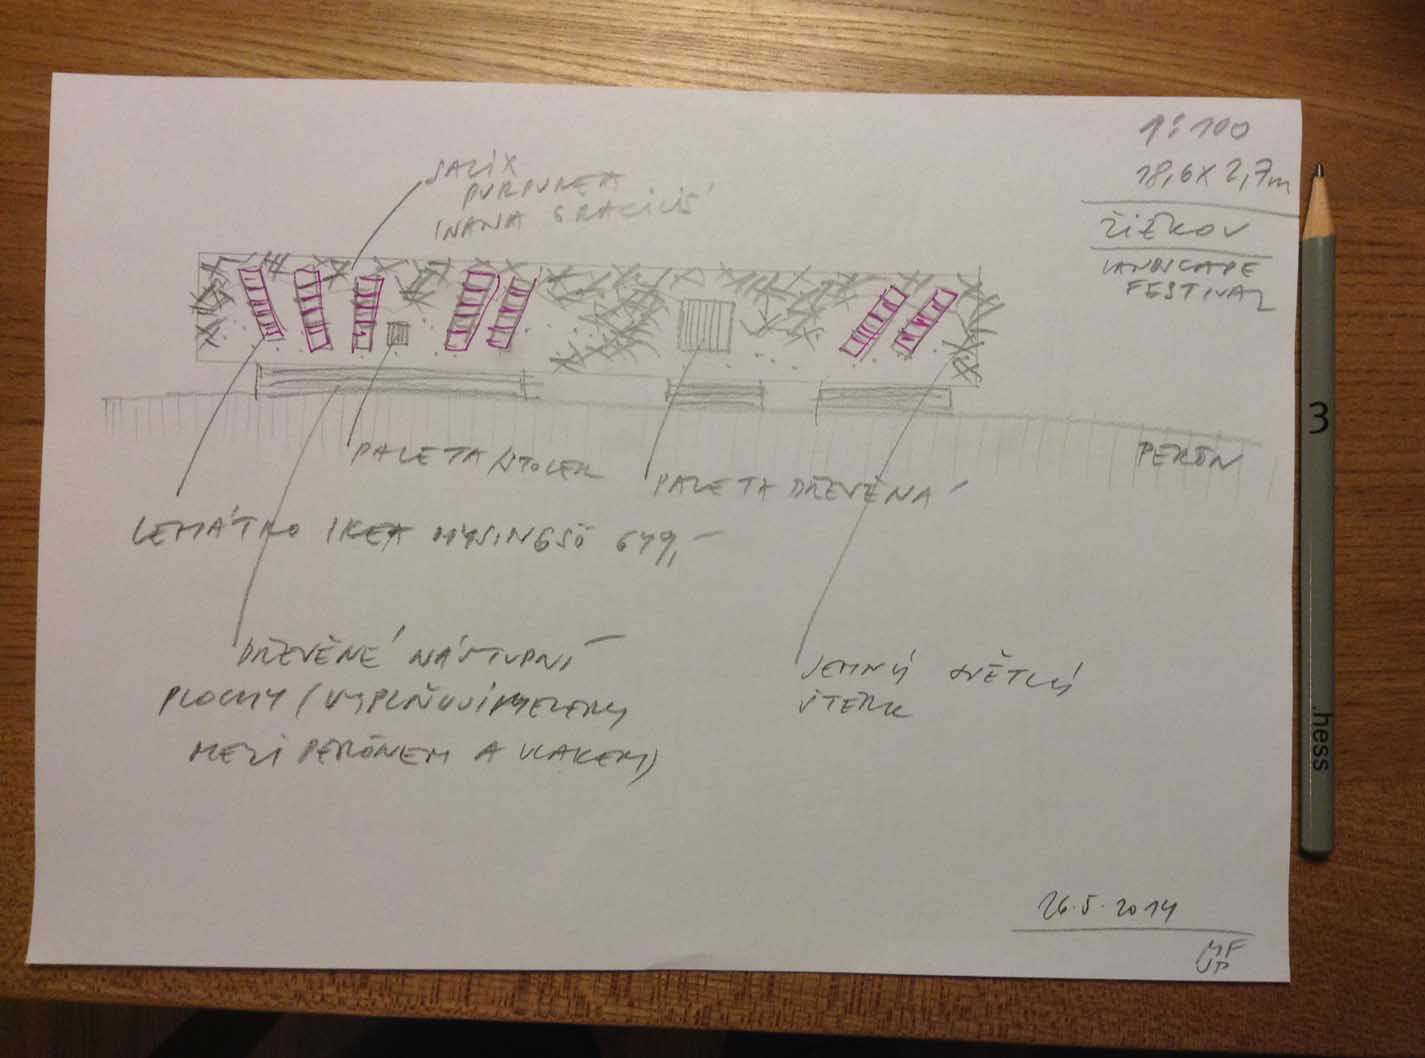 1:100
18,6 X 2,7m
ŽIŽKOV
LANDSCAPE
FESTIVAL
SALIX
PURPUREA
'NANA GRACILIS'
PALETA / STOLEK
PALETA DŘEVĚNÁ
PERÓN
LEHÁTKO IKEA MYSINGSÖ 649,-
DŘEVĚNÉ NÁSTUPNÍ
PLOCHY (VYPLŇUJÍ MEZERY
MEZI PERÓNEM A VLAKEM)
JEMNÝ SVĚTLÝ
ŠTĚRK
26.5.2014
MF
UP
3
.hess